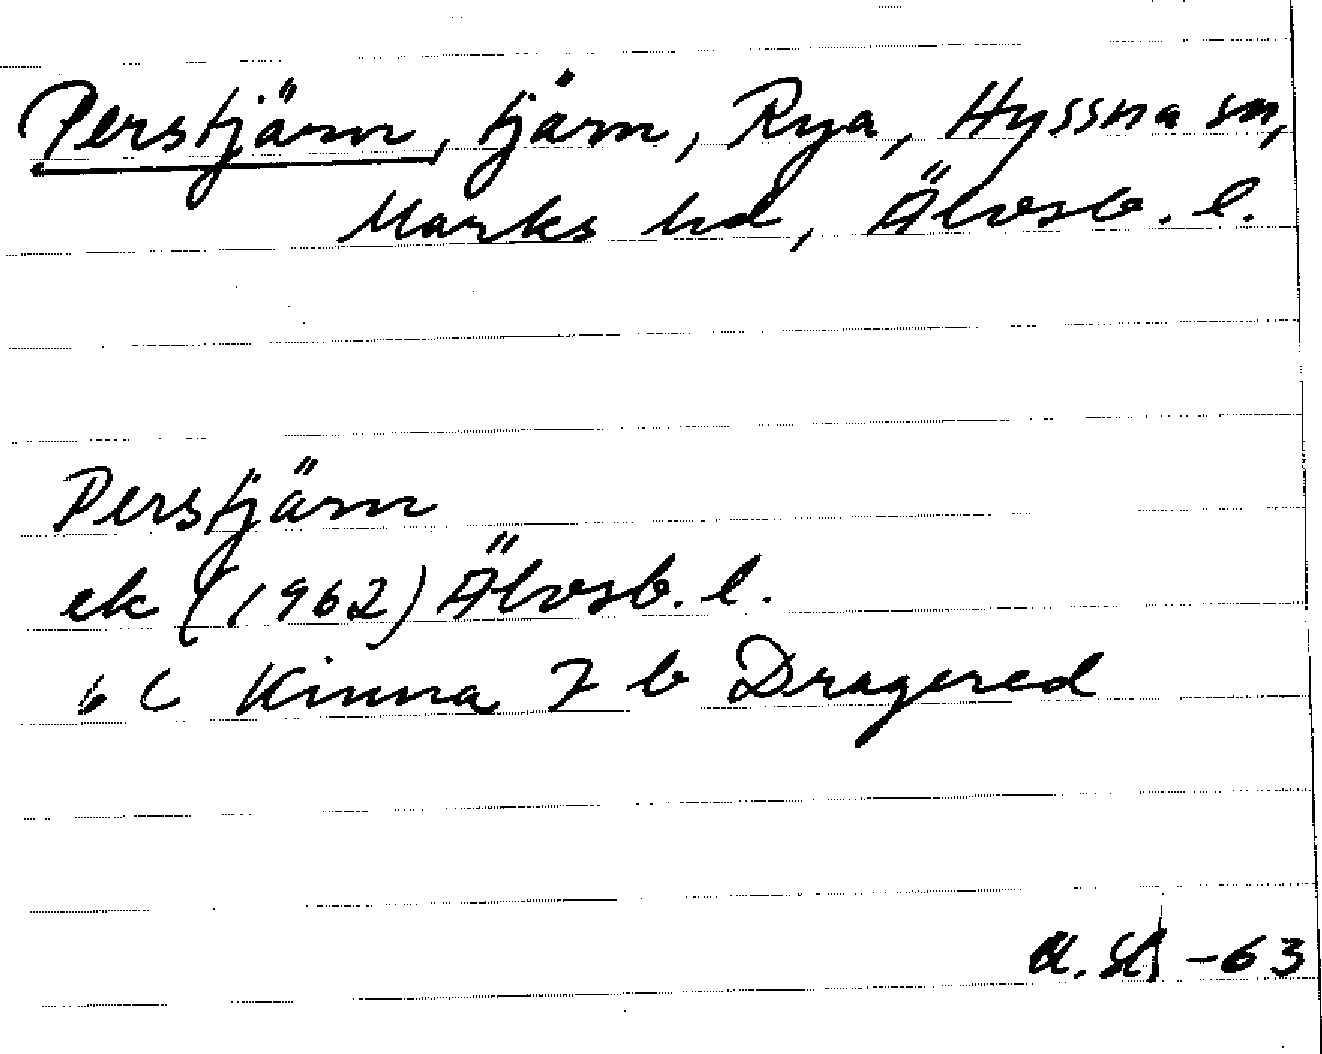 Perstjärn, tjärn, Rya, Hyssna sn,
Marks hd, Älvsb. l.
Perstjärn
ek (1962) Älvsb. l.
6 C Kinna 7 b Dragered
-63